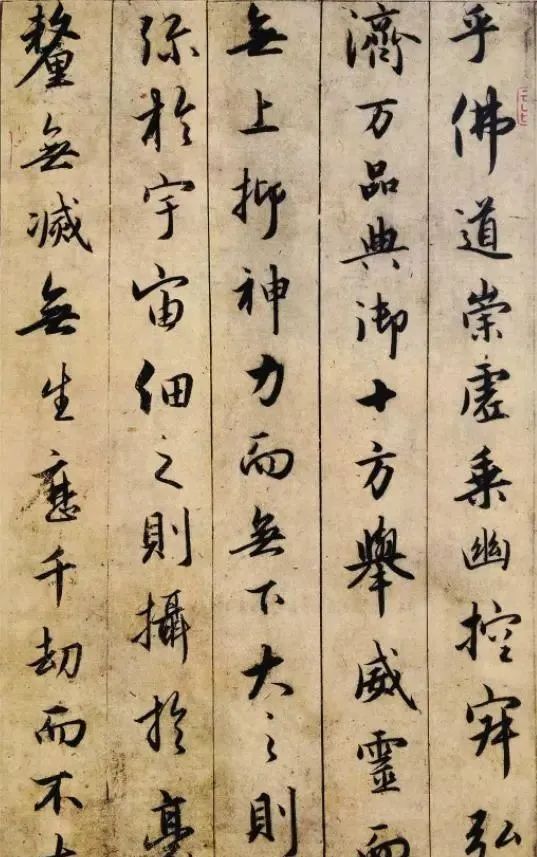 乎佛道崇虛乘幽控寂弘
濟万品典御十方舉威靈而
無上抑神力而無下大之則
弥於宇宙細之則攝於毫
釐無滅無生歷千劫而不